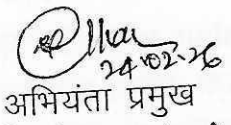 24-02-26
अभियंता प्रमुख